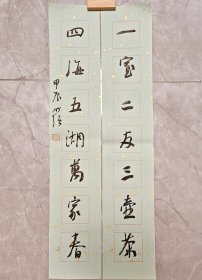 一室二友三壶茶
四海五湖萬家春
甲辰